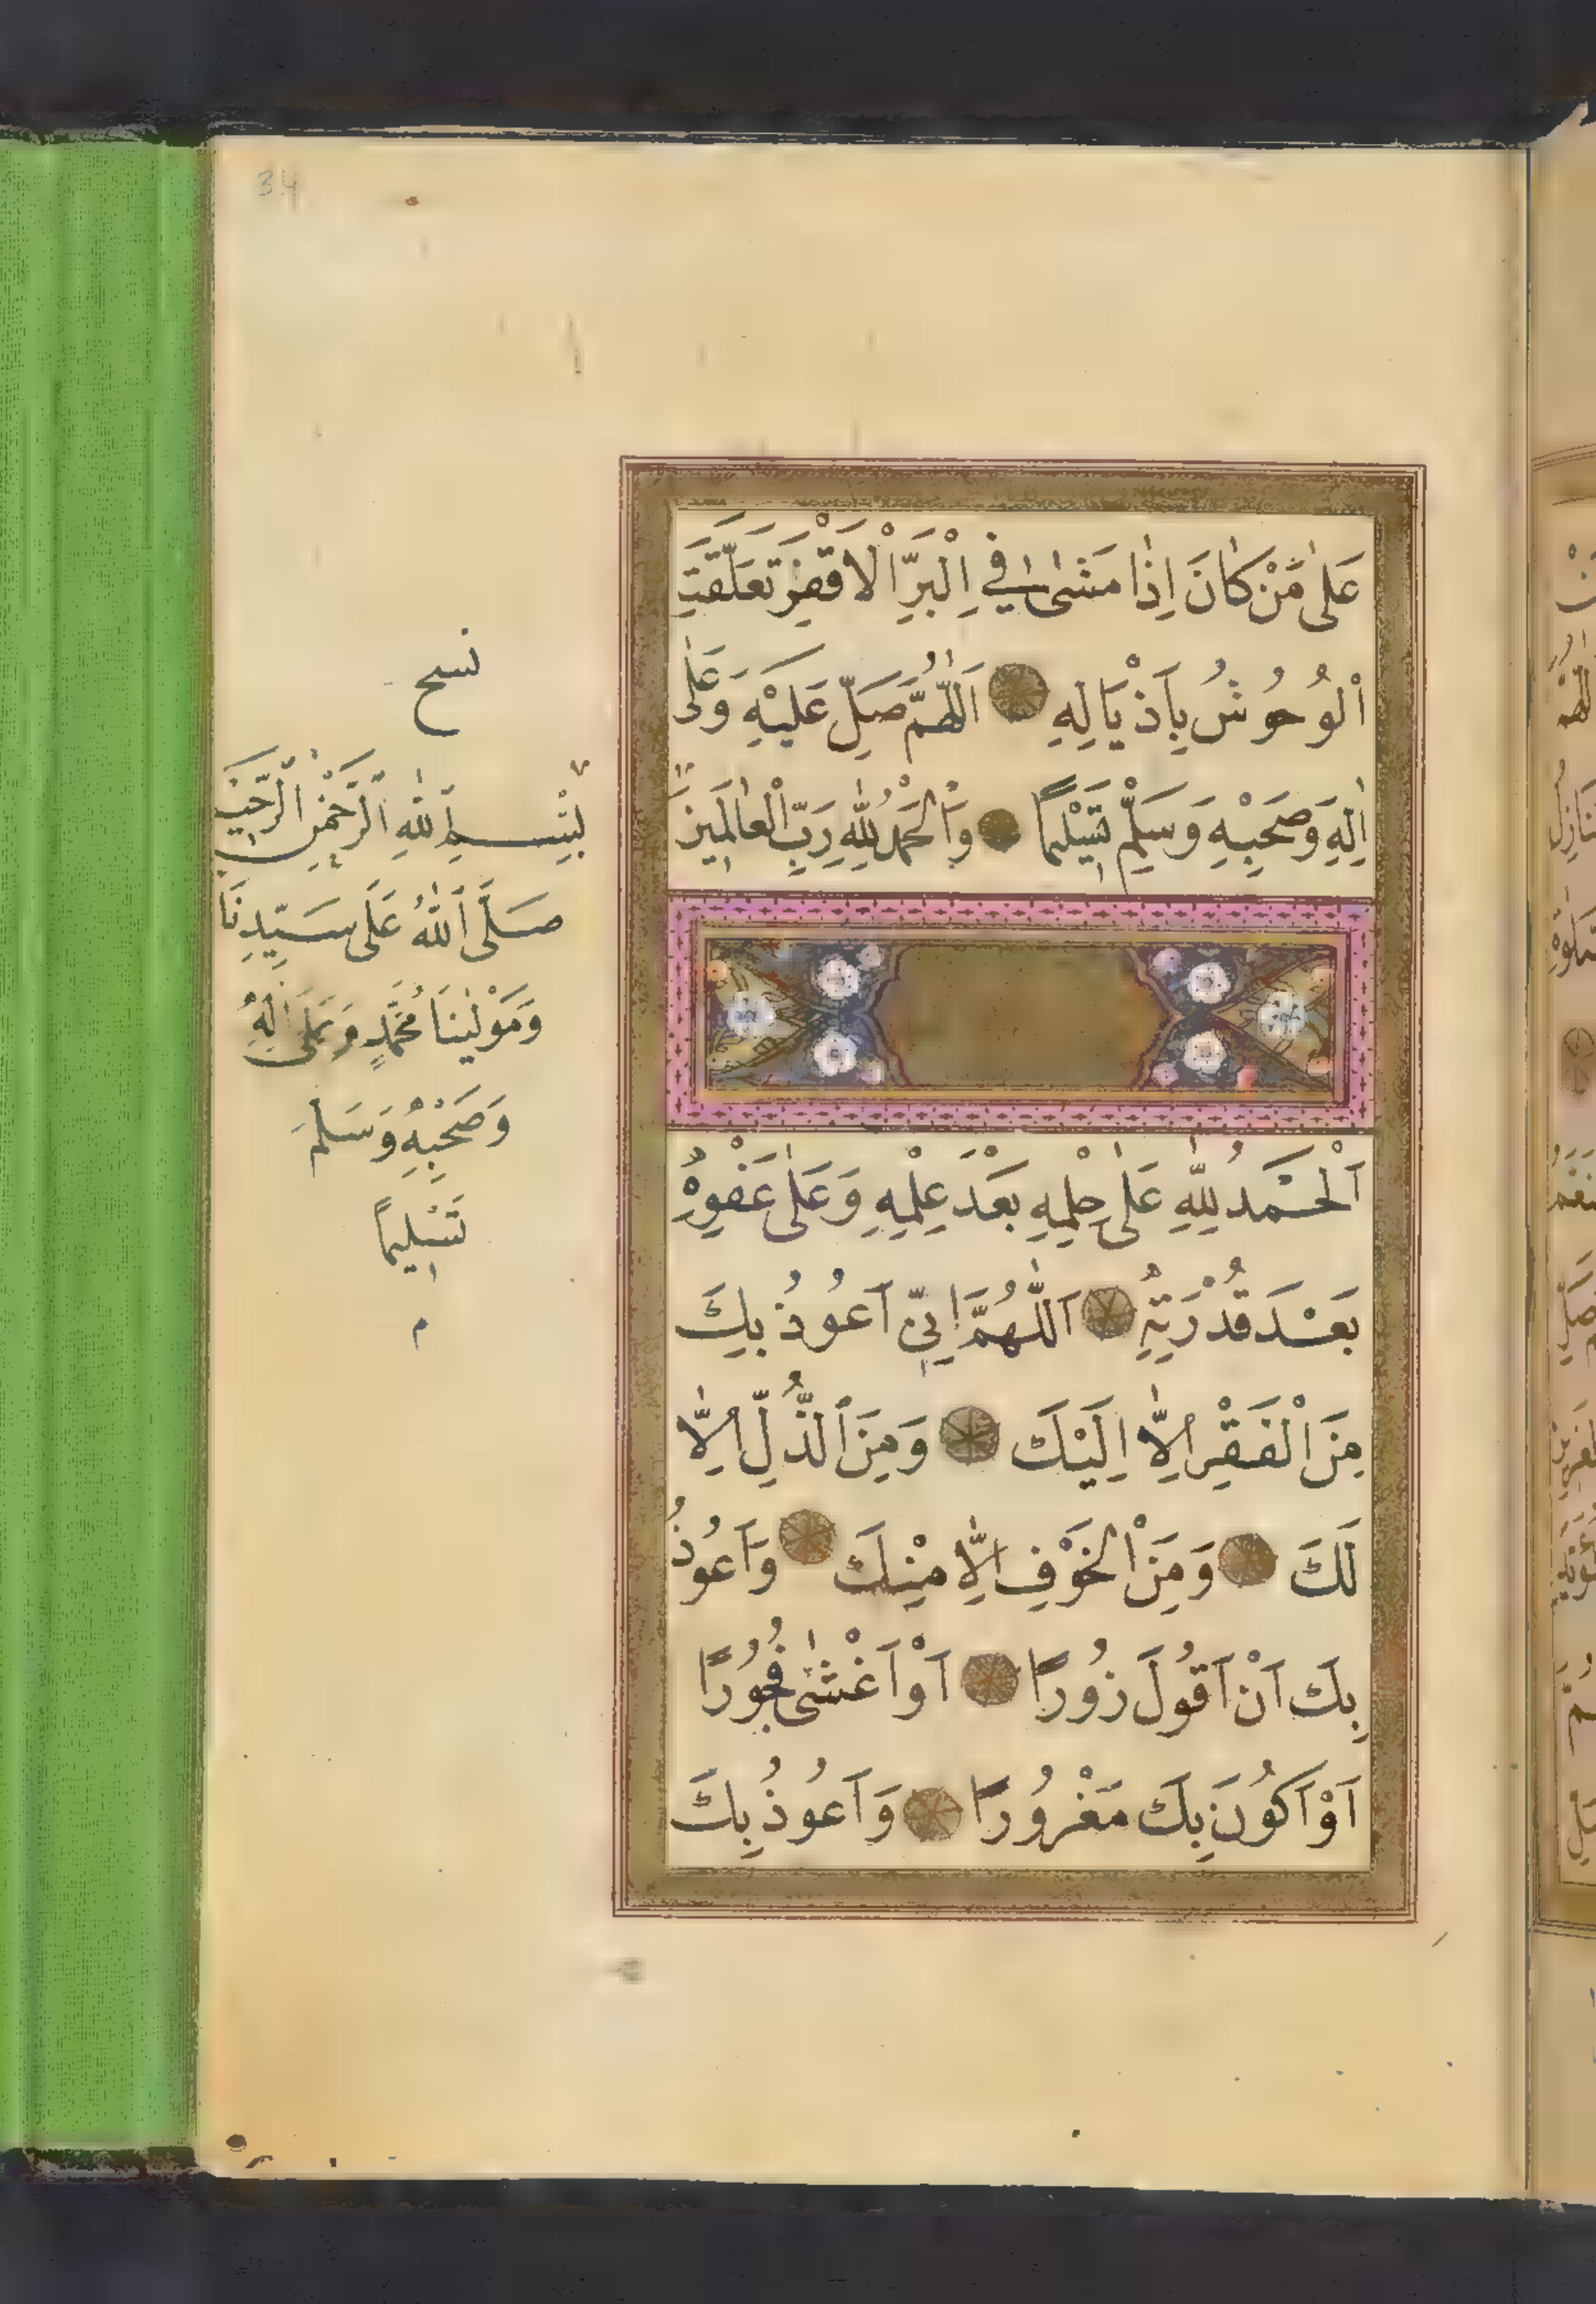 34
عَلٰى مَنْ كَانَ اِذَا مَشٰى فِي الْبَرِّ الْاَقْفَرِ تَعَلَّقَتِ
الْوُحُوشُ بِاَذْيَالِهِ ۞ اَللّٰهُمَّ صَلِّ عَلَيْهِ وَعَلٰى
اٰلِهِ وَصَحْبِهِ وَسَلِّمْ تَسْلِيمًا ۞ وَالْحَمْدُ لِلّٰهِ رَبِّ الْعَالَمِينَ
اَلْحَمْدُ لِلّٰهِ عَلٰى حِلْمِهِ بَعْدَ عِلْمِهِ وَعَلٰى عَفْوِهِ
بَعْدَ قُدْرَتِهِ ۞ اَللّٰهُمَّ اِنِّي اَعُوذُ بِكَ
مِنَ الْفَقْرِ اِلَّا اِلَيْكَ ۞ وَمِنَ الذُّلِّ اِلَّا
لَكَ ۞ وَمِنَ الْخَوْفِ اِلَّا مِنْكَ ۞ وَاَعُوذُ
بِكَ اَنْ اَقُولَ زُورًا ۞ اَوْ اَغْشٰى فُجُورًا
اَوْ اَكُونَ بِكَ مَغْرُورًا ۞ وَاَعُوذُ بِكَ
نسخ
بِسْمِ اللّٰهِ الرَّحْمٰنِ الرَّحِيمِ
صَلَّى اللّٰهُ عَلٰى سَيِّدِنَا
وَمَوْلٰينَا مُحَمَّدٍ وَعَلٰى اٰلِهِ
وَصَحْبِهِ وَسَلَّمَ
تَسْلِيمًا
م